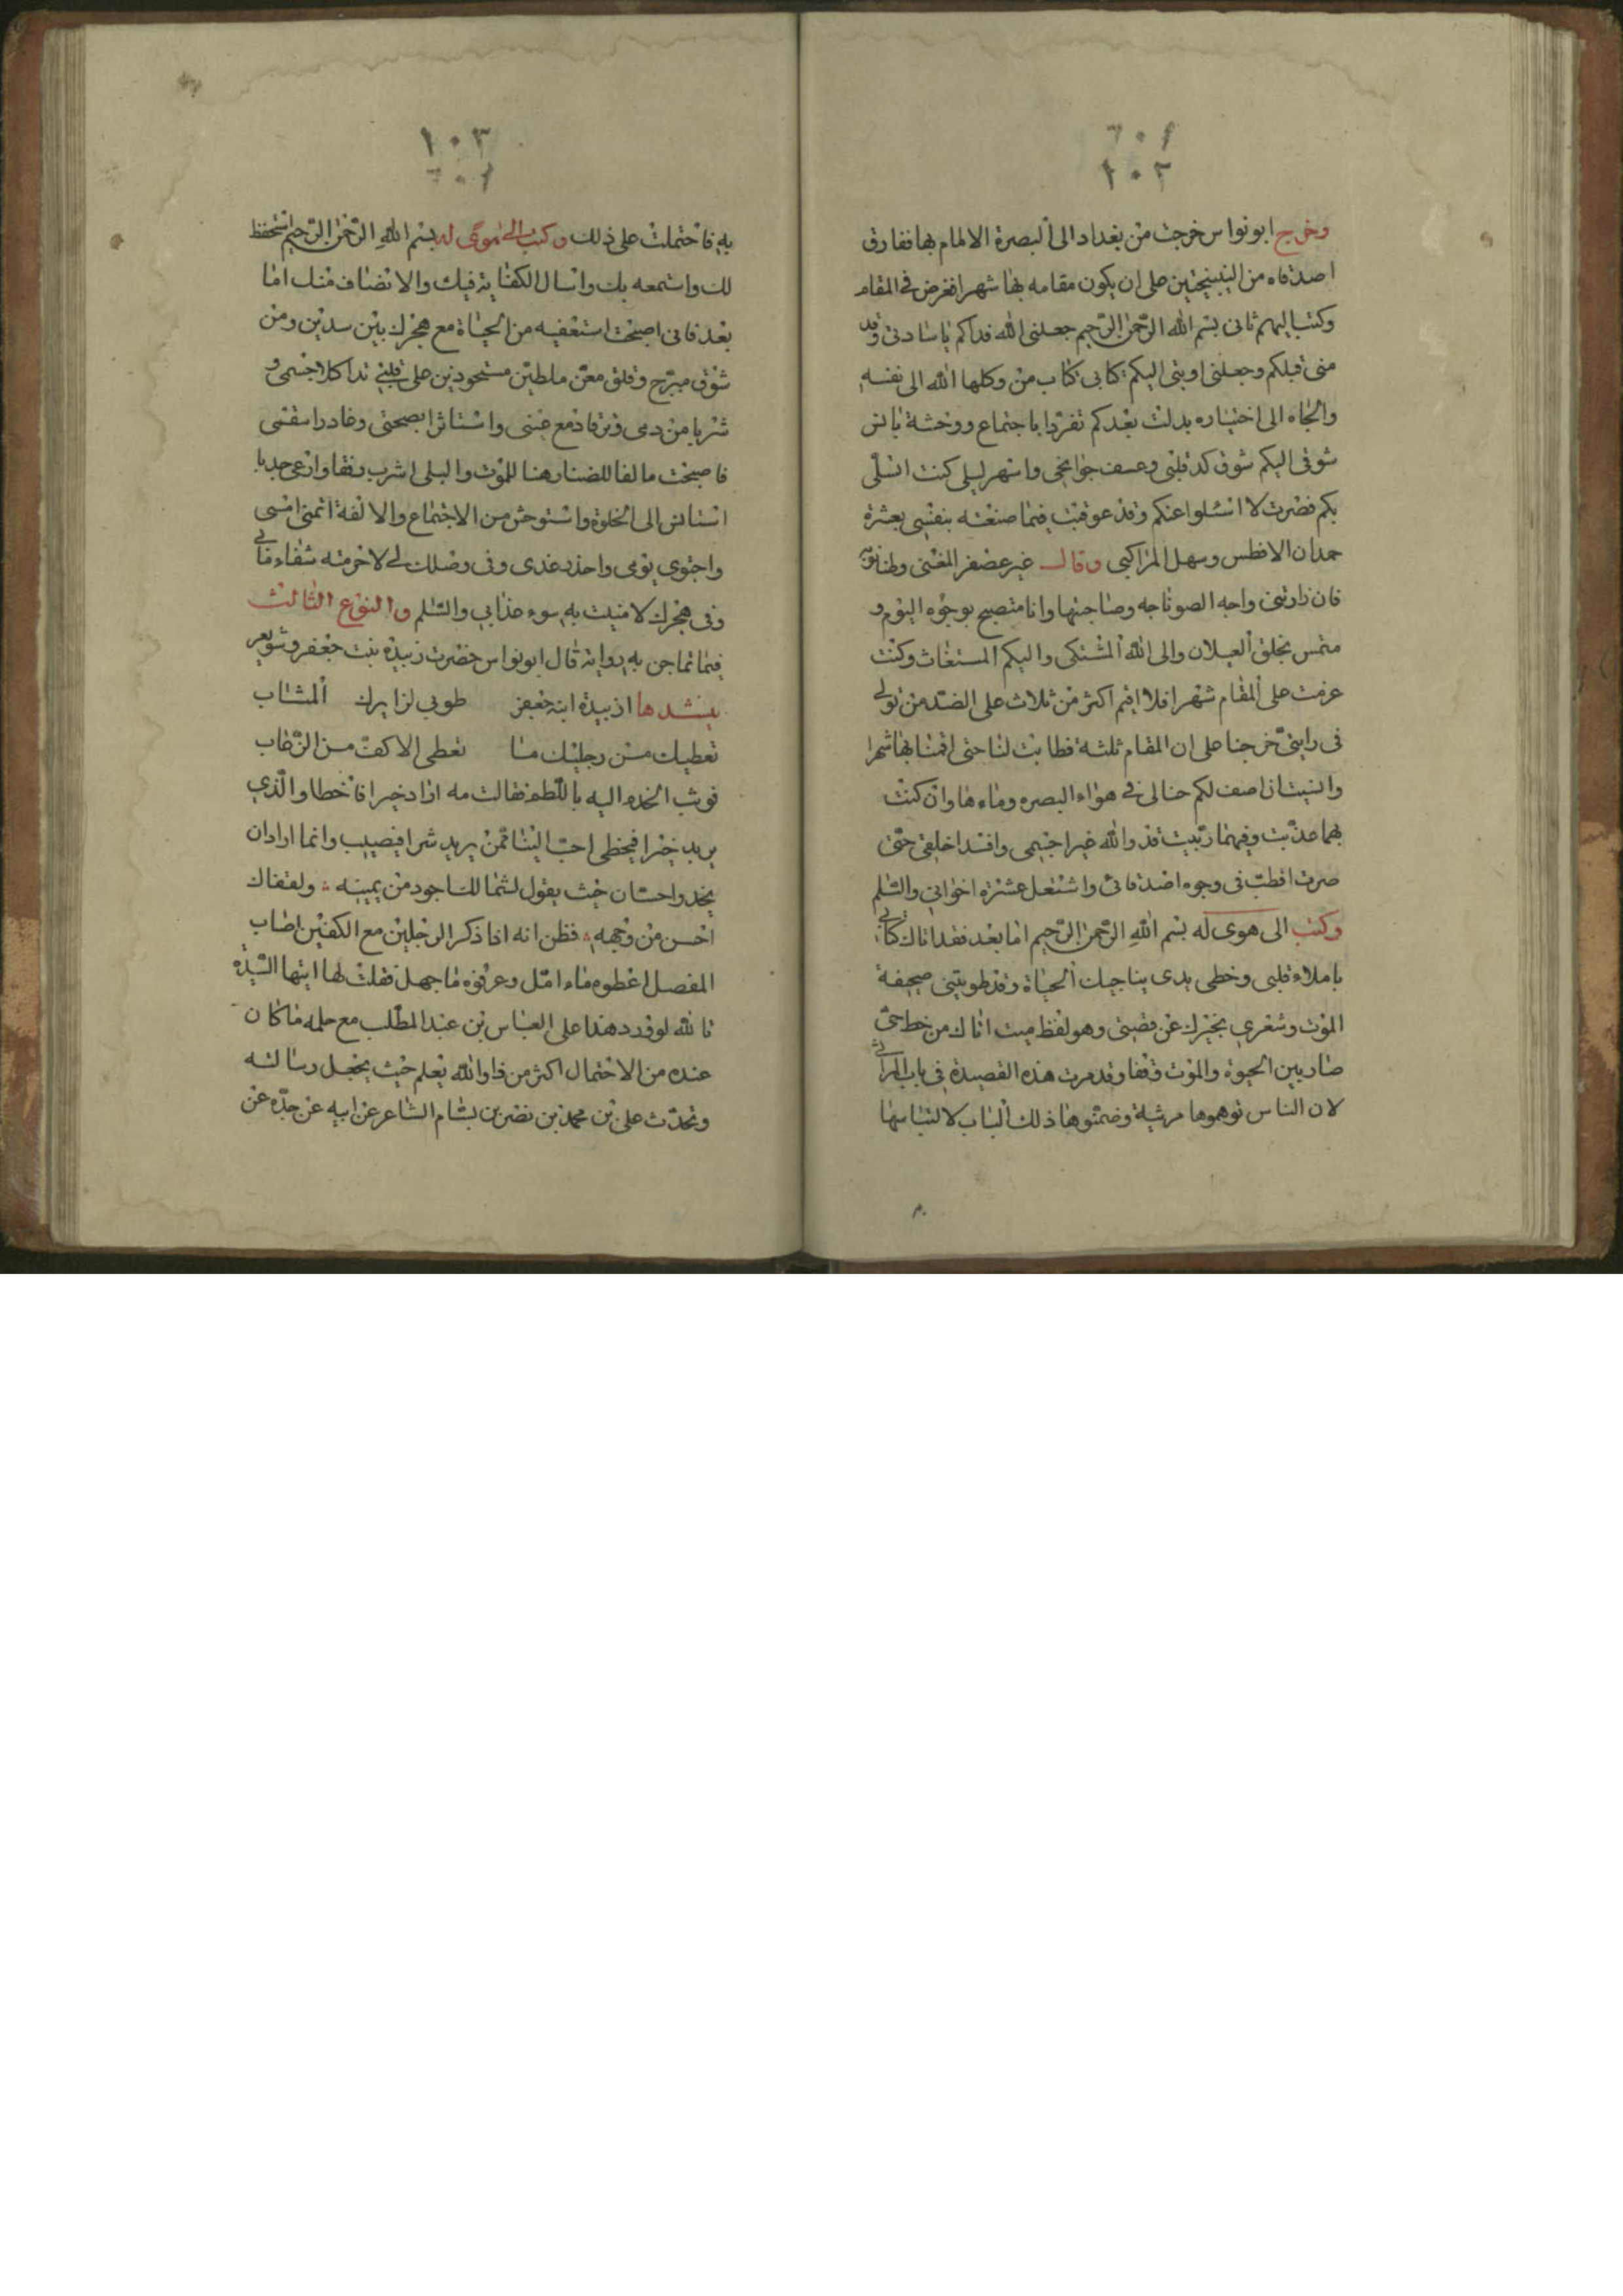 ١٠٢
وخرج ابو نواس خرجت من بغداد الى البصرة الالمام بها ففارق
اصدقاه من على ان يكون مقامه بها شهرا فعرض في المقام
وكتب اليهم ثانى بسم الله الرحمن الرحيم جعلنى الله فداكم ياسادتى وقد
منى قبلكم وجعلنى اوبتى اليكم كتابى كتاب من وكلها الله الى نفسه
والجاه الى اختياره بدلت بعدكم تفردا باجتماع ووحشة بانس
شوقى اليكم شوق كد قلبى وعسف جوانحى واسهر ليلى كنت اتسلى
بكم فصرت لا اتسلوا عنكم وقد عوقبت فيما صنعته بنفسى بعشرة
حمدان الافطس وسهل المراكبى وقال غير عصفر المغنى
فان زادتنى واجه وصاحبتها وانا متصبح بوجوه اليوم و
متمس بخلق الغيلان والى الله المشتكى واليكم المستغاث وكنت
عزمت على المقام شهرا فلا اقيم اكثر من ثلاث على الضد من قولى
فى رابنى خرجنا على ان المقام ثلثة فطابت لنا حتى اقمنا بها شهرا
وانسيت ان اصف لكم حالى فى هواء البصره وماءها وان كنت
بهما عذبت وفيهما ربيت قد والله غيرا جسمى وافسدا خلقى حتى
صرت اقطب فى وجوه اصدقائى واشتغل عشرة اخوانى والسلم
وكتب الى هوى له بسم الله الرحمن الرحيم اما بعد فقد اتاك كتابى
باملاء قلبى وخطى يدى يناجيك الحياة وقد طويتنى صحيفة
الموت وشعرى يخبرك عن قصتى وهو لفظ ميت اتاك من خط حى
صار بين الحيوة والموت وقفا وقد مرت هذه القصيدة فى باب المراثى
لان الناس توهموها مرثية وضمنوها ذلك الباب لالتباسها
١٠٣
به فاحتملت على ذلك وكتب الى هوى له بسم الله الرحمن الرحيم استحفظ
لك واستمعه بك واسال الكفاية فيك والانصاف منك اما
بعد فانى اصبحت استعفيه من الحياة مع هجرك بين سدين ومن
شوق مبرح وقلق معن ملطين مستحوذين على قلبى تداكلا جسمى و
شربا من دمى وترقا دمع عينى واستاثرا بصحتى وغادرا سقمى
فاصبحت مالفا للضنا رهنا للموت والبلى اشرب رنقا وارعى جدبا
استانس الى الخلوة واستوحش من الاجتماع والالفة اتمنى امسى
واجتوى يومى واحذر غدى وفى وصلك لى لاحرمته شفاء مابى
وفى هجرك لا منيت به سوء عذابى والسلم والنوع الثالث
فيما تماجن به رواية قال ابو نواس حضرت زبيدة بنت جعفر وشويعر
ينشدها ازبيدة ابنة جعفر طوبى لزايرك المثاب
تعطيك من رجليك ما تعطى الاكف من الرغاب
فوثب الخدم اليه باللطم فقالت مه اراد خيرا فاخطا والذى
يريد خيرا فيخطى احب الينا ممن يريد شرا فيصيب وانما اراد ان
يخد واحسان حيث يقول لشمالك اجود من يمينه ولقفاك
احسن من وجهه فظن انه اذا ذكر الرجلين مع الكفين اصاب
المفصل اعطوه ماء امل وعرفوه ما جهل فقلت لها ايتها السيدة
تالله لو ورد هذا على العباس بن عبد المطلب مع حلمه ما كان
عنده من الاحتمال اكثر من ذا والله يعلم حيث يجعل رسالته
وتحدث على بن محمد بن نصر بن بسام الشاعر عن ابيه عن جده عن